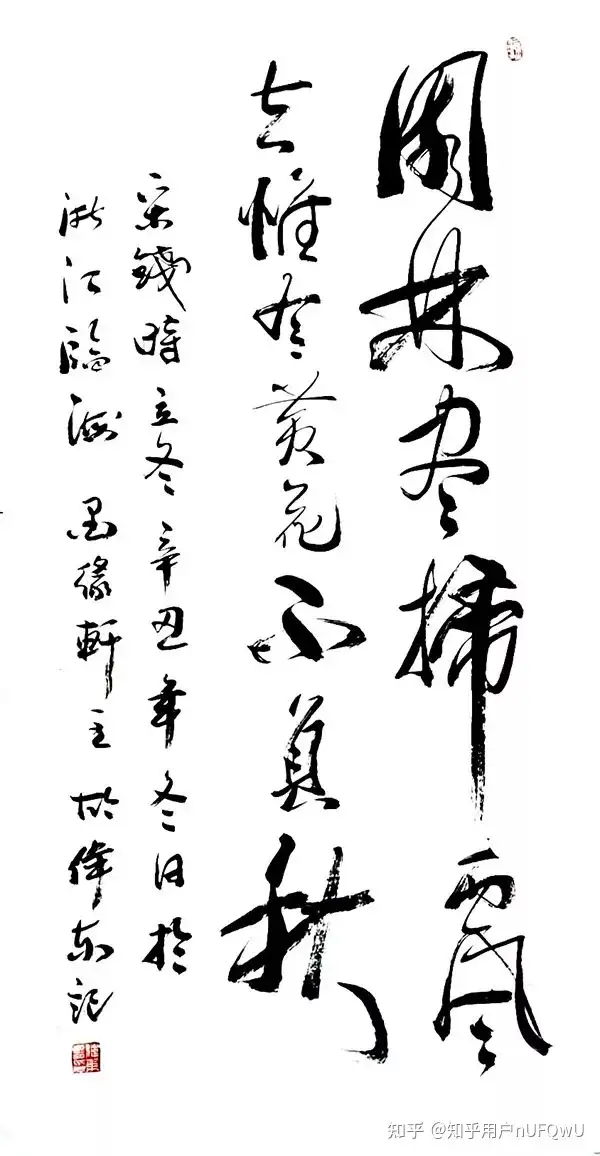 園林尽掃西風
去惟有黄花不負秋
宋錢時立冬辛丑年冬日於
浙江臨海 墨緣軒主偉东記
知乎 @知乎用户nUFQwU